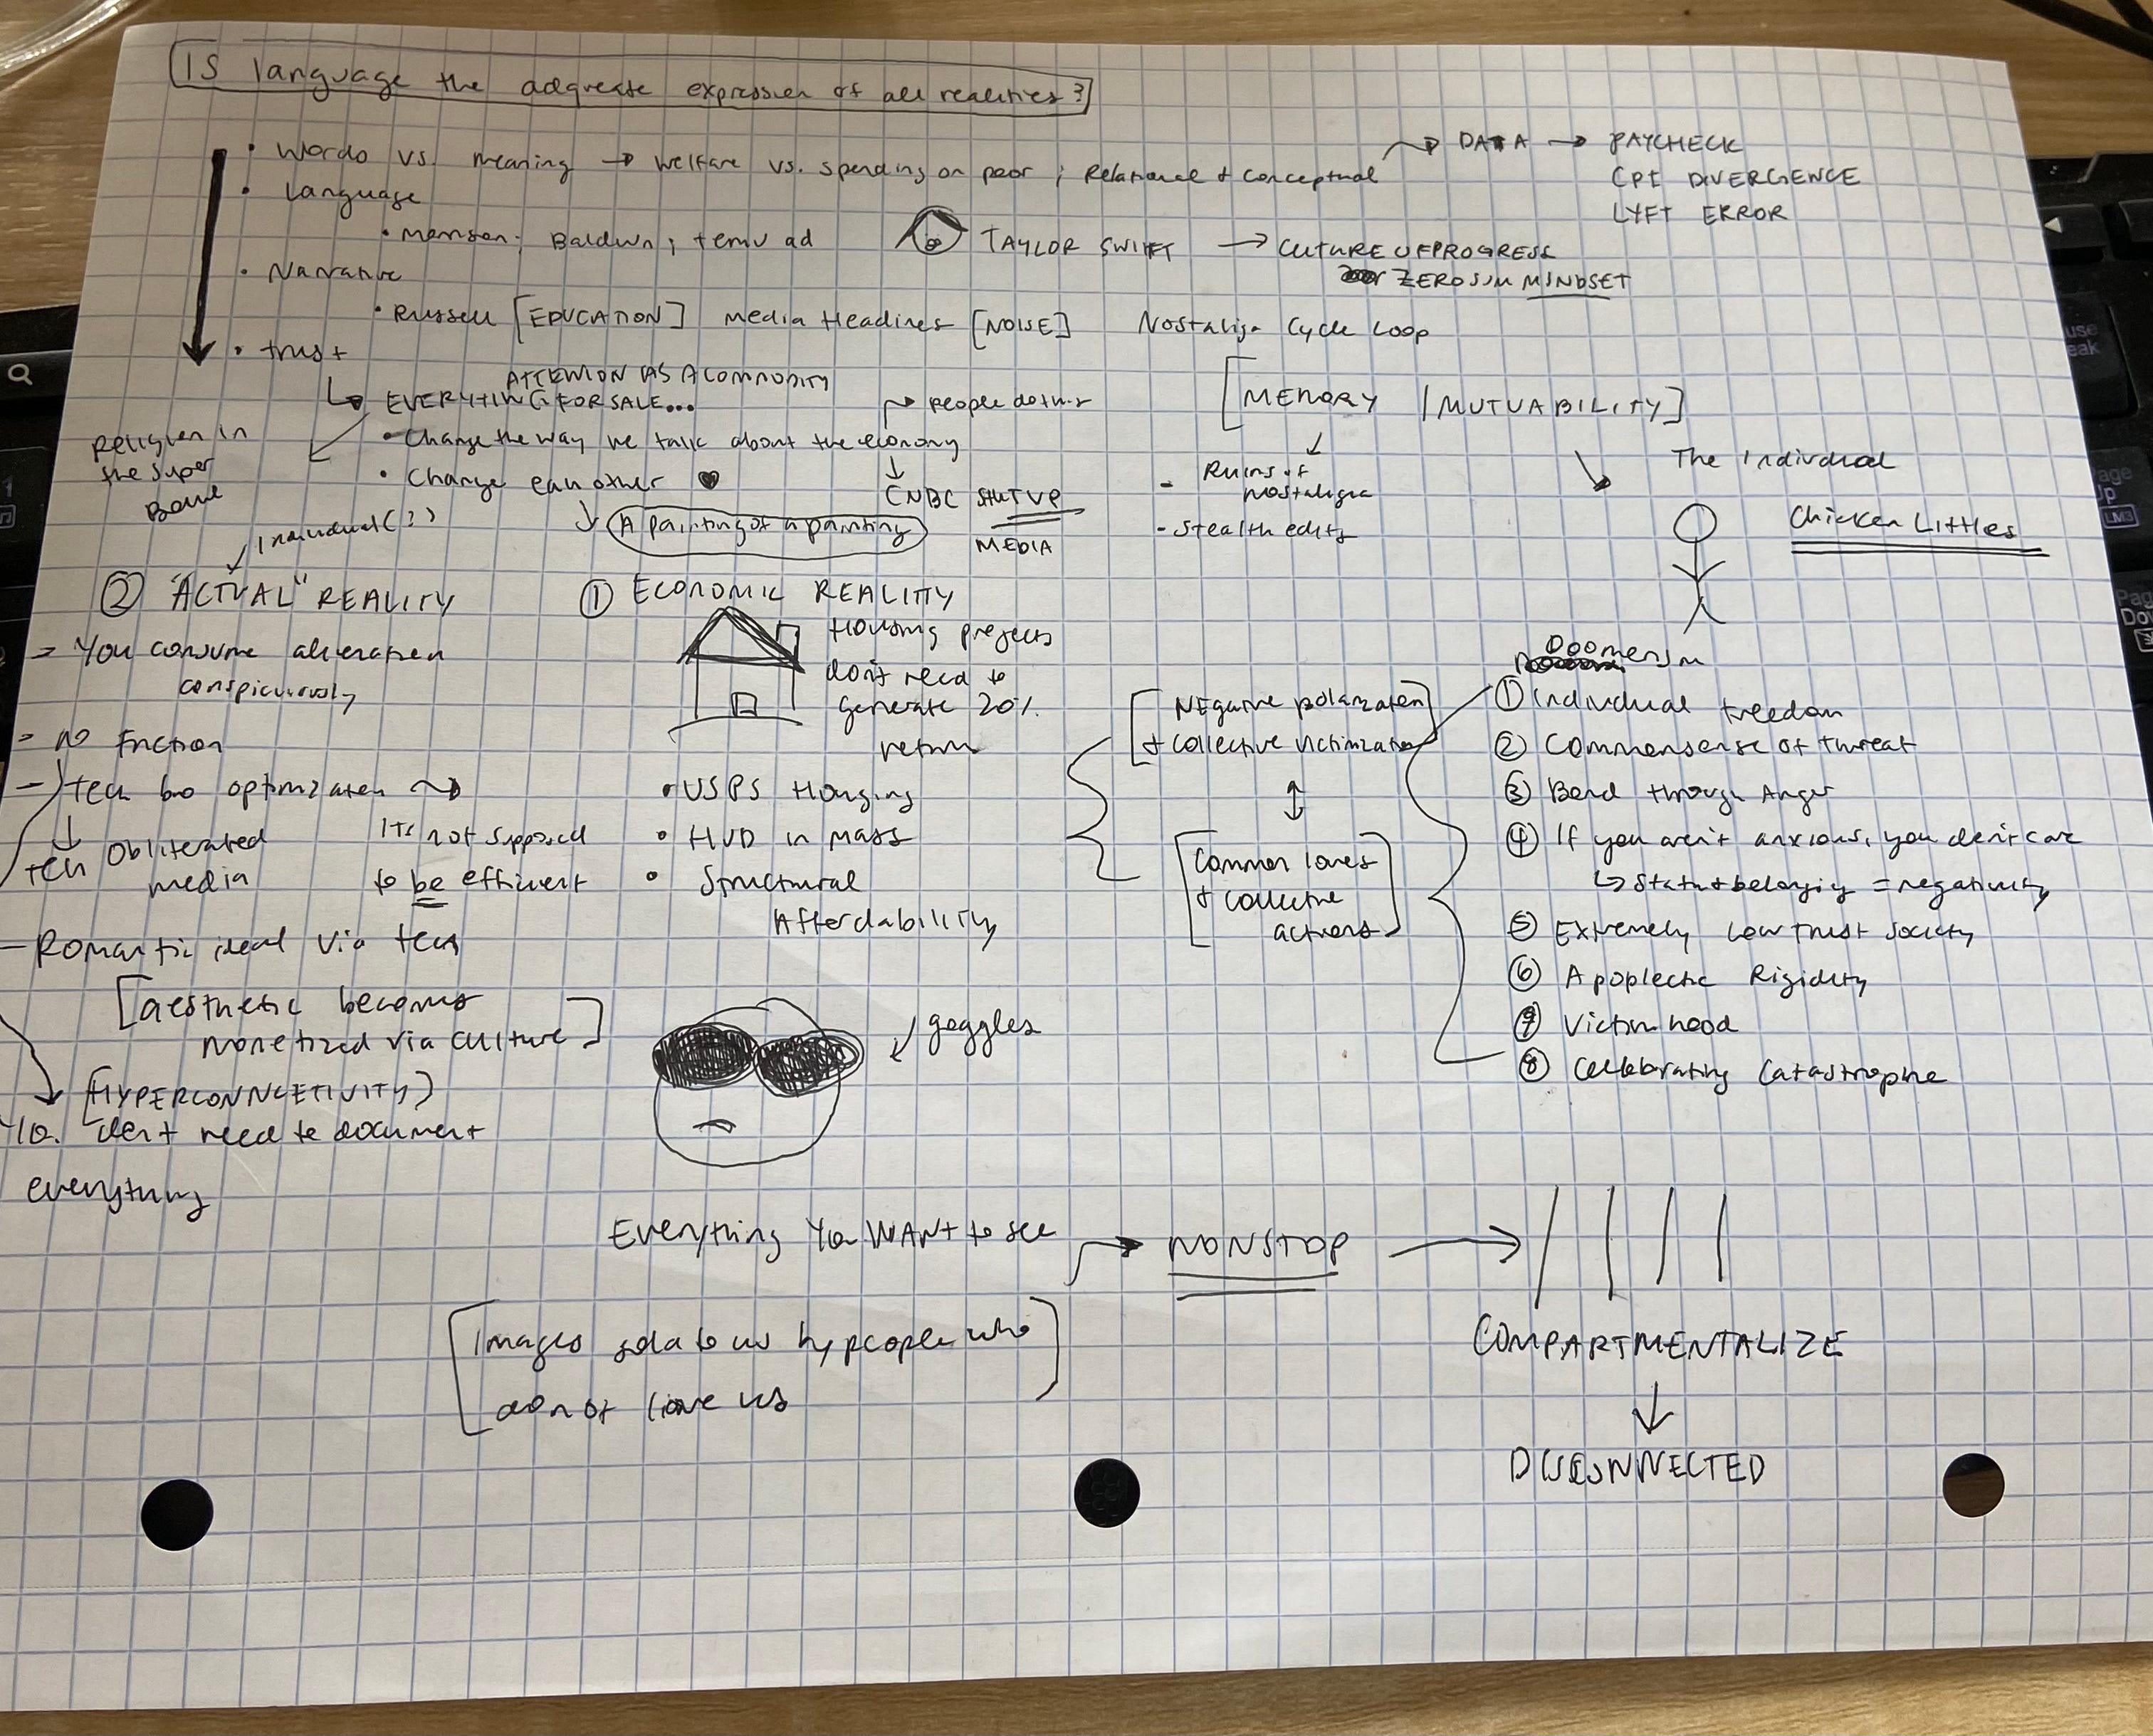 IS language the adequate expression of all realities?
• Words vs. meaning → welfare vs. spending on poor ; Relational + conceptual → DATA → PAYCHECK
CPI DIVERGENCE
LYFT ERROR
• Language
• Morrison; Baldwin; temu ad
TAYLOR SWIFT → CULTURE OF PROGRESS
ZERO SUM MINDSET
• Narrative
• Russell [EDUCATION] Media Headlines [NOISE]
Nostalgia Cycle Loop
• trust
ATTENTION AS A COMMODITY
EVERYTING FOR SALE...
• Change the way we talk about the economy
• Change each other
Religion in
the Super
Bowl
People do this
CNBC SHUT UP
MEDIA
A painting of a painting
[MEMORY / MUTUABILITY]
- Ruins of
nostalgia
- Stealth edits
The Individual
Chicken Littles
Individual (?)
② "ACTUAL" REALITY
- You consume alienation
conspicuously
- no Friction
- tech bro optimization
It's not supposed
to be efficient
tech Obliterated
media
- Romantic ideal via tech
[aesthetic becomes
monetized via culture]
[HYPERCONNCETIVITY)
don't need to document
everything
① ECONOMIC REALITY
Housing projects
don't need to
generate 20%
return
• USPS Housing
• HUD in mass
• Structural
Affordability
[Negative polarization
+ collective victimization]
[Common loves
+ collective
actions]
Doomerism
① Individual freedom
② Commonsense of threat
③ Bond through Anger
④ If you aren't anxious, you don't care
↳ Status + belonging = negativity
⑤ Extremely low trust society
⑥ Apoplectic Rigidity
⑦ Victimhood
⑧ Celebrating Catastrophe
goggles
Everything You WANT to see → NONSTOP →
[Images sold to us by people who
do not love us]
COMPARTMENTALIZE
↓
DISCONNECTED